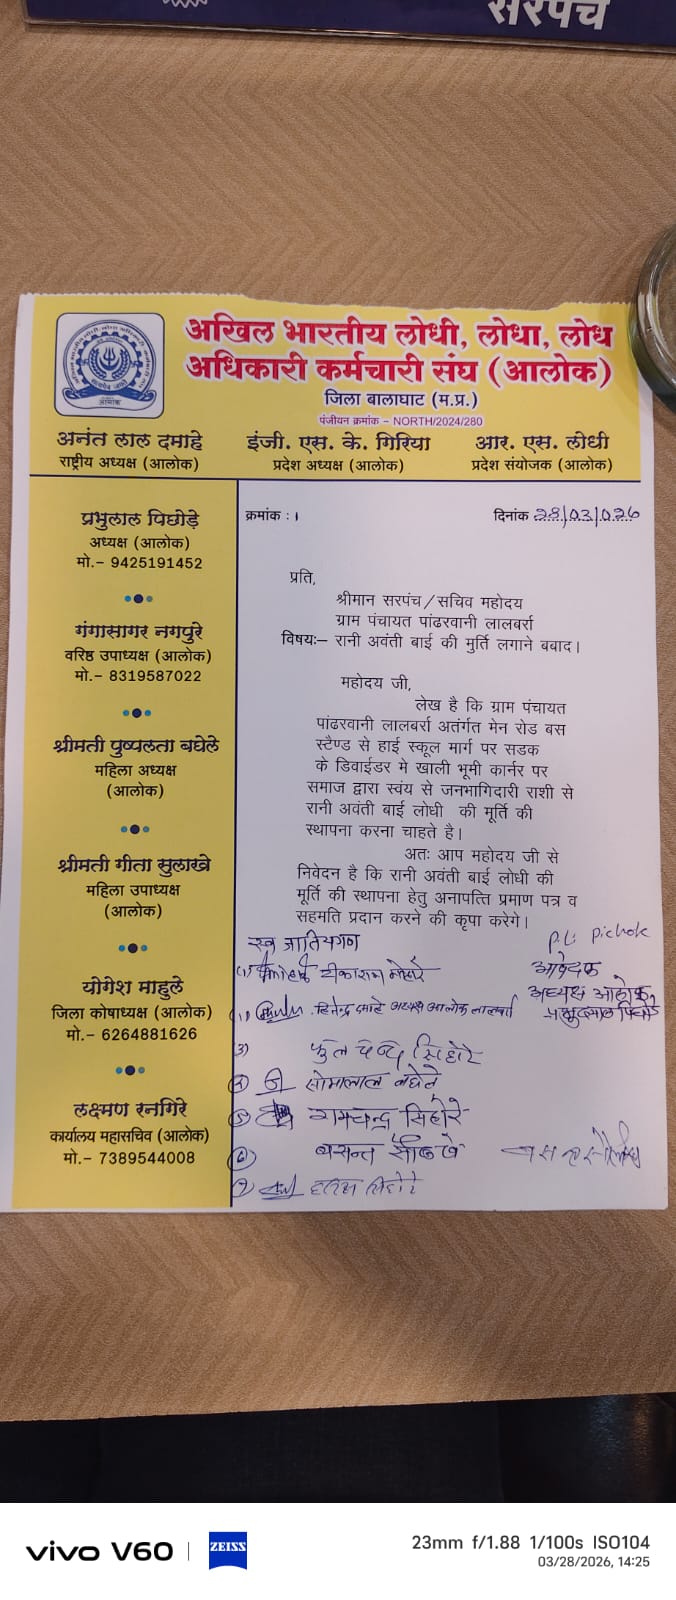 सरपंच
अखिल भारतीय लोधी, लोधा, लोध
अधिकारी कर्मचारी संघ (आलोक)
जिला बालाघाट (म.प्र.)
पंजीयन क्रमांक – NORTH/2024/280
अनंत लाल दमाहे
राष्ट्रीय अध्यक्ष (आलोक)
इंजी. एस. के. गिरिया
प्रदेश अध्यक्ष (आलोक)
आर. एस. लोधी
प्रदेश संयोजक (आलोक)
प्रभुलाल पिछोड़े
अध्यक्ष (आलोक)
मो.– 9425191452
गंगासागर नगपुरे
वरिष्ठ उपाध्यक्ष (आलोक)
मो.– 8319587022
श्रीमती पुष्पलता बघेले
महिला अध्यक्ष
(आलोक)
श्रीमती गीता सुलाखे
महिला उपाध्यक्ष
(आलोक)
योगेश माहुले
जिला कोषाध्यक्ष (आलोक)
मो.– 6264881626
लक्ष्मण रनगिरे
कार्यालय महासचिव (आलोक)
मो.– 7389544008
क्रमांक : 1
दिनांक 28/03/026
प्रति,
श्रीमान सरपंच/सचिव महोदय
ग्राम पंचायत पांढरवानी लालबर्रा
विषयः– रानी अवंती बाई की मुर्ति लगाने बबाद।
महोदय जी,
लेख है कि ग्राम पंचायत
पांढरवानी लालबर्रा अतंर्गत मेन रोड बस
स्टैण्ड से हाई स्कूल मार्ग पर सडक
के डिवाईडर मे खाली भूमी कार्नर पर
समाज द्वारा स्वंय से जनभागिदारी राशी से
रानी अवंती बाई लोधी की मूर्ति की
स्थापना करना चाहते है।
अतः आप महोदय जी से
निवेदन है कि रानी अवंती बाई लोधी की
मूर्ति की स्थापना हेतु अनापत्ति प्रमाण पत्र व
सहमति प्रदान करने की कृपा करेगे।
स्व जातिगण
P.L. Pichode
आवेदक
अध्यक्ष आलोक
(1) टीकाराम
(1) जितेन्द्र दमाहे अध्यक्ष आलोक लालबर्रा
(3) फुलचन्द सिहोरे
(4) सोमालाल बघेले
(5) रामचन्द्र सिहोरे
(6) बसन्त
(7) सिहोरे
vivo V60
ZEISS
23mm f/1.88 1/100s ISO104
03/28/2026, 14:25